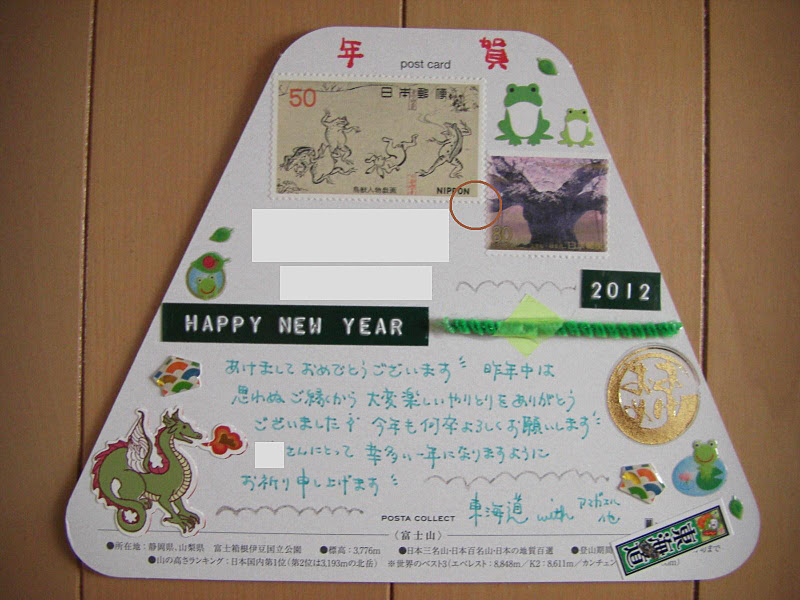 年 賀
post card
50 日本郵便
鳥獣人物戯画 NIPPON
80 日本郵便
2012
HAPPY NEW YEAR
あけましておめでとうございます 昨年中は
思わぬご縁から 大変楽しいやりとりをありがとう
ございました 今年も何卒よろしくお願いします
さんにとって 幸多い一年になりますように
お祈り申し上げます
東海道 with 他
POSTA COLLECT
(富士山)
●所在地:静岡県、山梨県 富士箱根伊豆国立公園 ●標高:3,776m ●日本三名山・日本百名山・日本の地質百選 ●登山期間 まで
●山の高さランキング:日本国内第1位(第2位は3,193mの北岳) ※世界のベスト3(エベレスト:8,848m/K2:8,611m/カンチェン
東海道